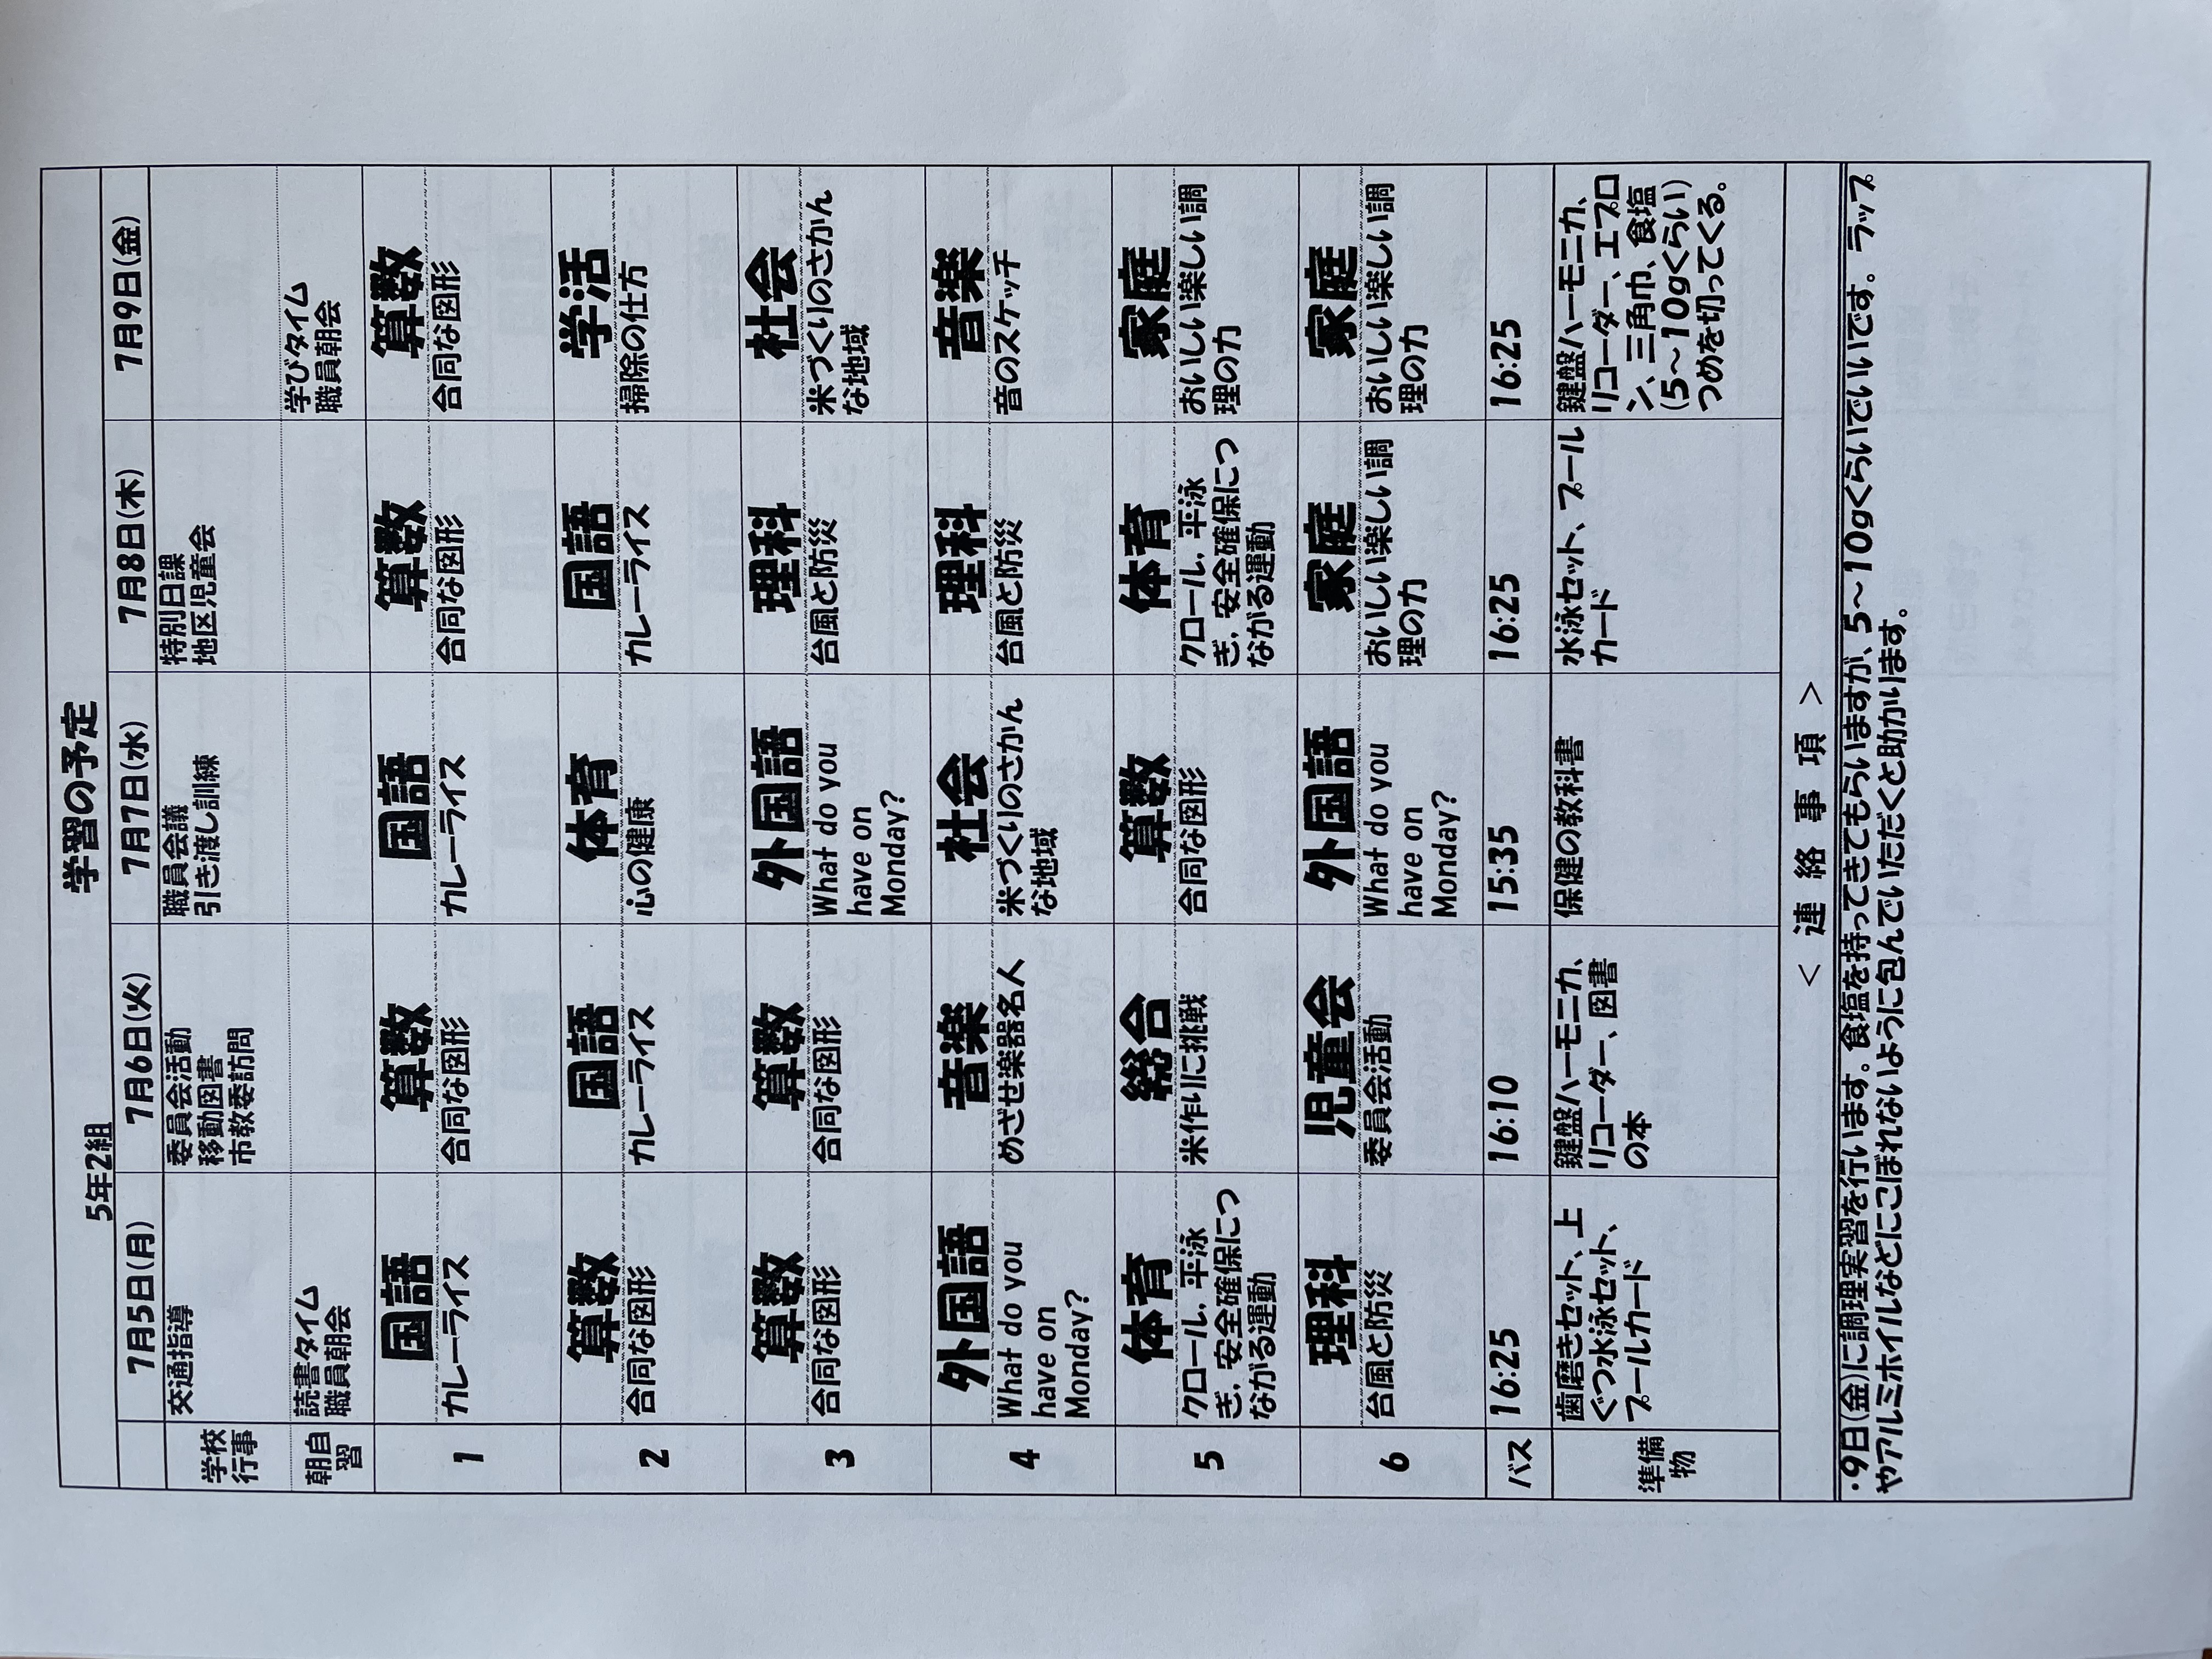 学習の予定
5年2組
7月5日(月) 7月6日(火) 7月7日(水) 7月8日(木) 7月9日(金)
学校
行事
交通指導
委員会活動
移動図書
市教委訪問
職員会議
引き渡し訓練
特別日課
地区児童会
朝自
習
読書タイム
職員朝会
学びタイム
職員朝会
1
国語
カレーライス
算数
合同な図形
国語
カレーライス
算数
合同な図形
算数
合同な図形
2
算数
合同な図形
国語
カレーライス
体育
心の健康
国語
カレーライス
学活
掃除の仕方
3
算数
合同な図形
算数
合同な図形
外国語
What do you
have on
Monday?
理科
台風と防災
社会
米づくりのさかん
な地域
4
外国語
What do you
have on
Monday?
音楽
めざせ楽器名人
社会
米づくりのさかん
な地域
理科
台風と防災
音楽
音のスケッチ
5
体育
クロール，平泳
ぎ，安全確保につ
ながる運動
総合
米作りに挑戦
算数
合同な図形
体育
クロール，平泳
ぎ，安全確保につ
ながる運動
家庭
おいしい楽しい調
理の力
6
理科
台風と防災
児童会
委員会活動
外国語
What do you
have on
Monday?
家庭
おいしい楽しい調
理の力
家庭
おいしい楽しい調
理の力
バス 16:25 16:10 15:35 16:25 16:25
準備
物
歯磨きセット、上
ぐつ水泳セット、
プールカード
鍵盤ハーモニカ、
リコーダー、図書
の本
保健の教科書
水泳セット、プール
カード
鍵盤ハーモニカ、
リコーダー、エプロ
ン、三角巾、食塩
(5～10gくらい)
つめを切ってくる。
＜ 連 絡 事 項 ＞
・9日(金)に調理実習を行います。食塩を持ってきてもらいますが、5～10gくらいでいいです。ラップ
やアルミホイルなどにこぼれないように包んでいただくと助かります。